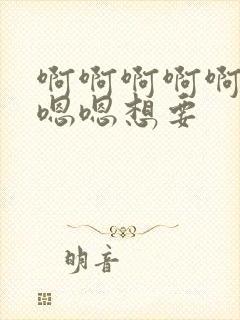 啊啊啊啊啊
嗯嗯想要
明音